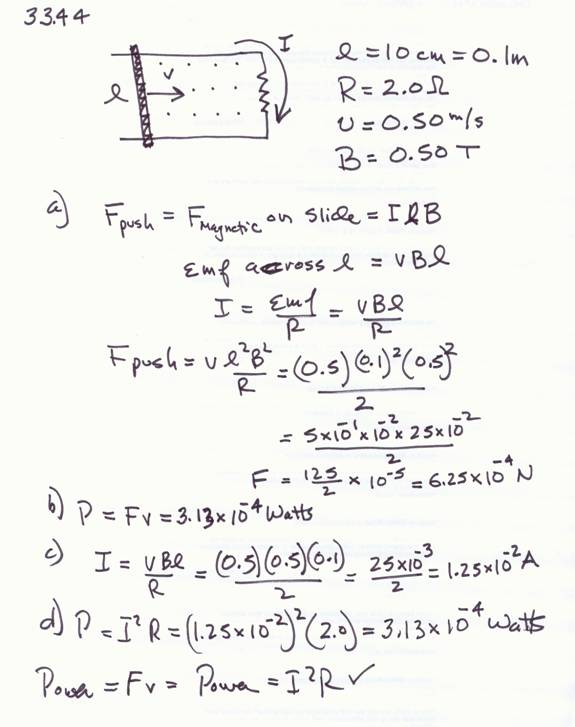 33.44
I
l = 10 cm = 0.1m
v
l
R = 2.0 Ω
υ = 0.50 m/s
B = 0.50 T
a) F push = F Magnetic on slide = I l B
Emf across l = vBl
I = Emf/R = vBl/R
F push = v l²B²/R = (0.5)(0.1)²(0.5)²/2
= 5×10⁻¹×10⁻²×25×10⁻²/2
F = 125/2 × 10⁻⁵ = 6.25×10⁻⁴ N
b) P = Fv = 3.13×10⁻⁴ Watts
c) I = vBl/R = (0.5)(0.5)(0.1)/2 = 25×10⁻³/2 = 1.25×10⁻² A
d) P = I²R = (1.25×10⁻²)²(2.0) = 3.13×10⁻⁴ Watts
Power = Fv = Power = I²R ✓